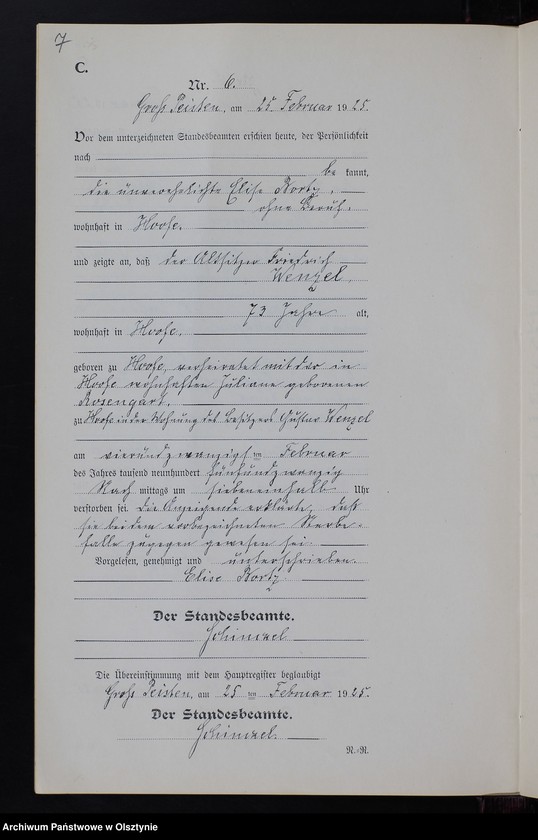 7
C.
Nr. 6.
Groß Peisten, am 25. Februar 1925.
Vor dem unterzeichneten Standesbeamten erschien heute, der Persönlichkeit
nach
be kannt,
die unverehelichte Elise Kortz,
ohne Beruf,
wohnhaft in Hoofe,
und zeigte an, daß der Altsitzer Friedrich
Wenzel,
73 Jahre alt,
wohnhaft in Hoofe,
geboren zu Hoofe, verheiratet mit der in
Hoofe wohnhaften Juliane geborenen
Rosengart,
zu Hoofe in der Wohnung des Besitzers Gustav Wenzel
am vierundzwanzigsten Februar
des Jahres tausend neunhundert fünfundzwanzig
Nach mittags um siebeneinhalb Uhr
verstorben sei. Die Anzeigende erklärte, daß
sie bei dem vorbezeichneten Sterbe-
falle zugegen gewesen sei.
Vorgelesen, genehmigt und unterschrieben.
Elise Kortz
Der Standesbeamte.
Die Übereinstimmung mit dem Hauptregister beglaubigt
Groß Peisten, am 25 ten Februar 1925.
Der Standesbeamte.
N.-R.
Archiwum Państwowe w Olsztynie